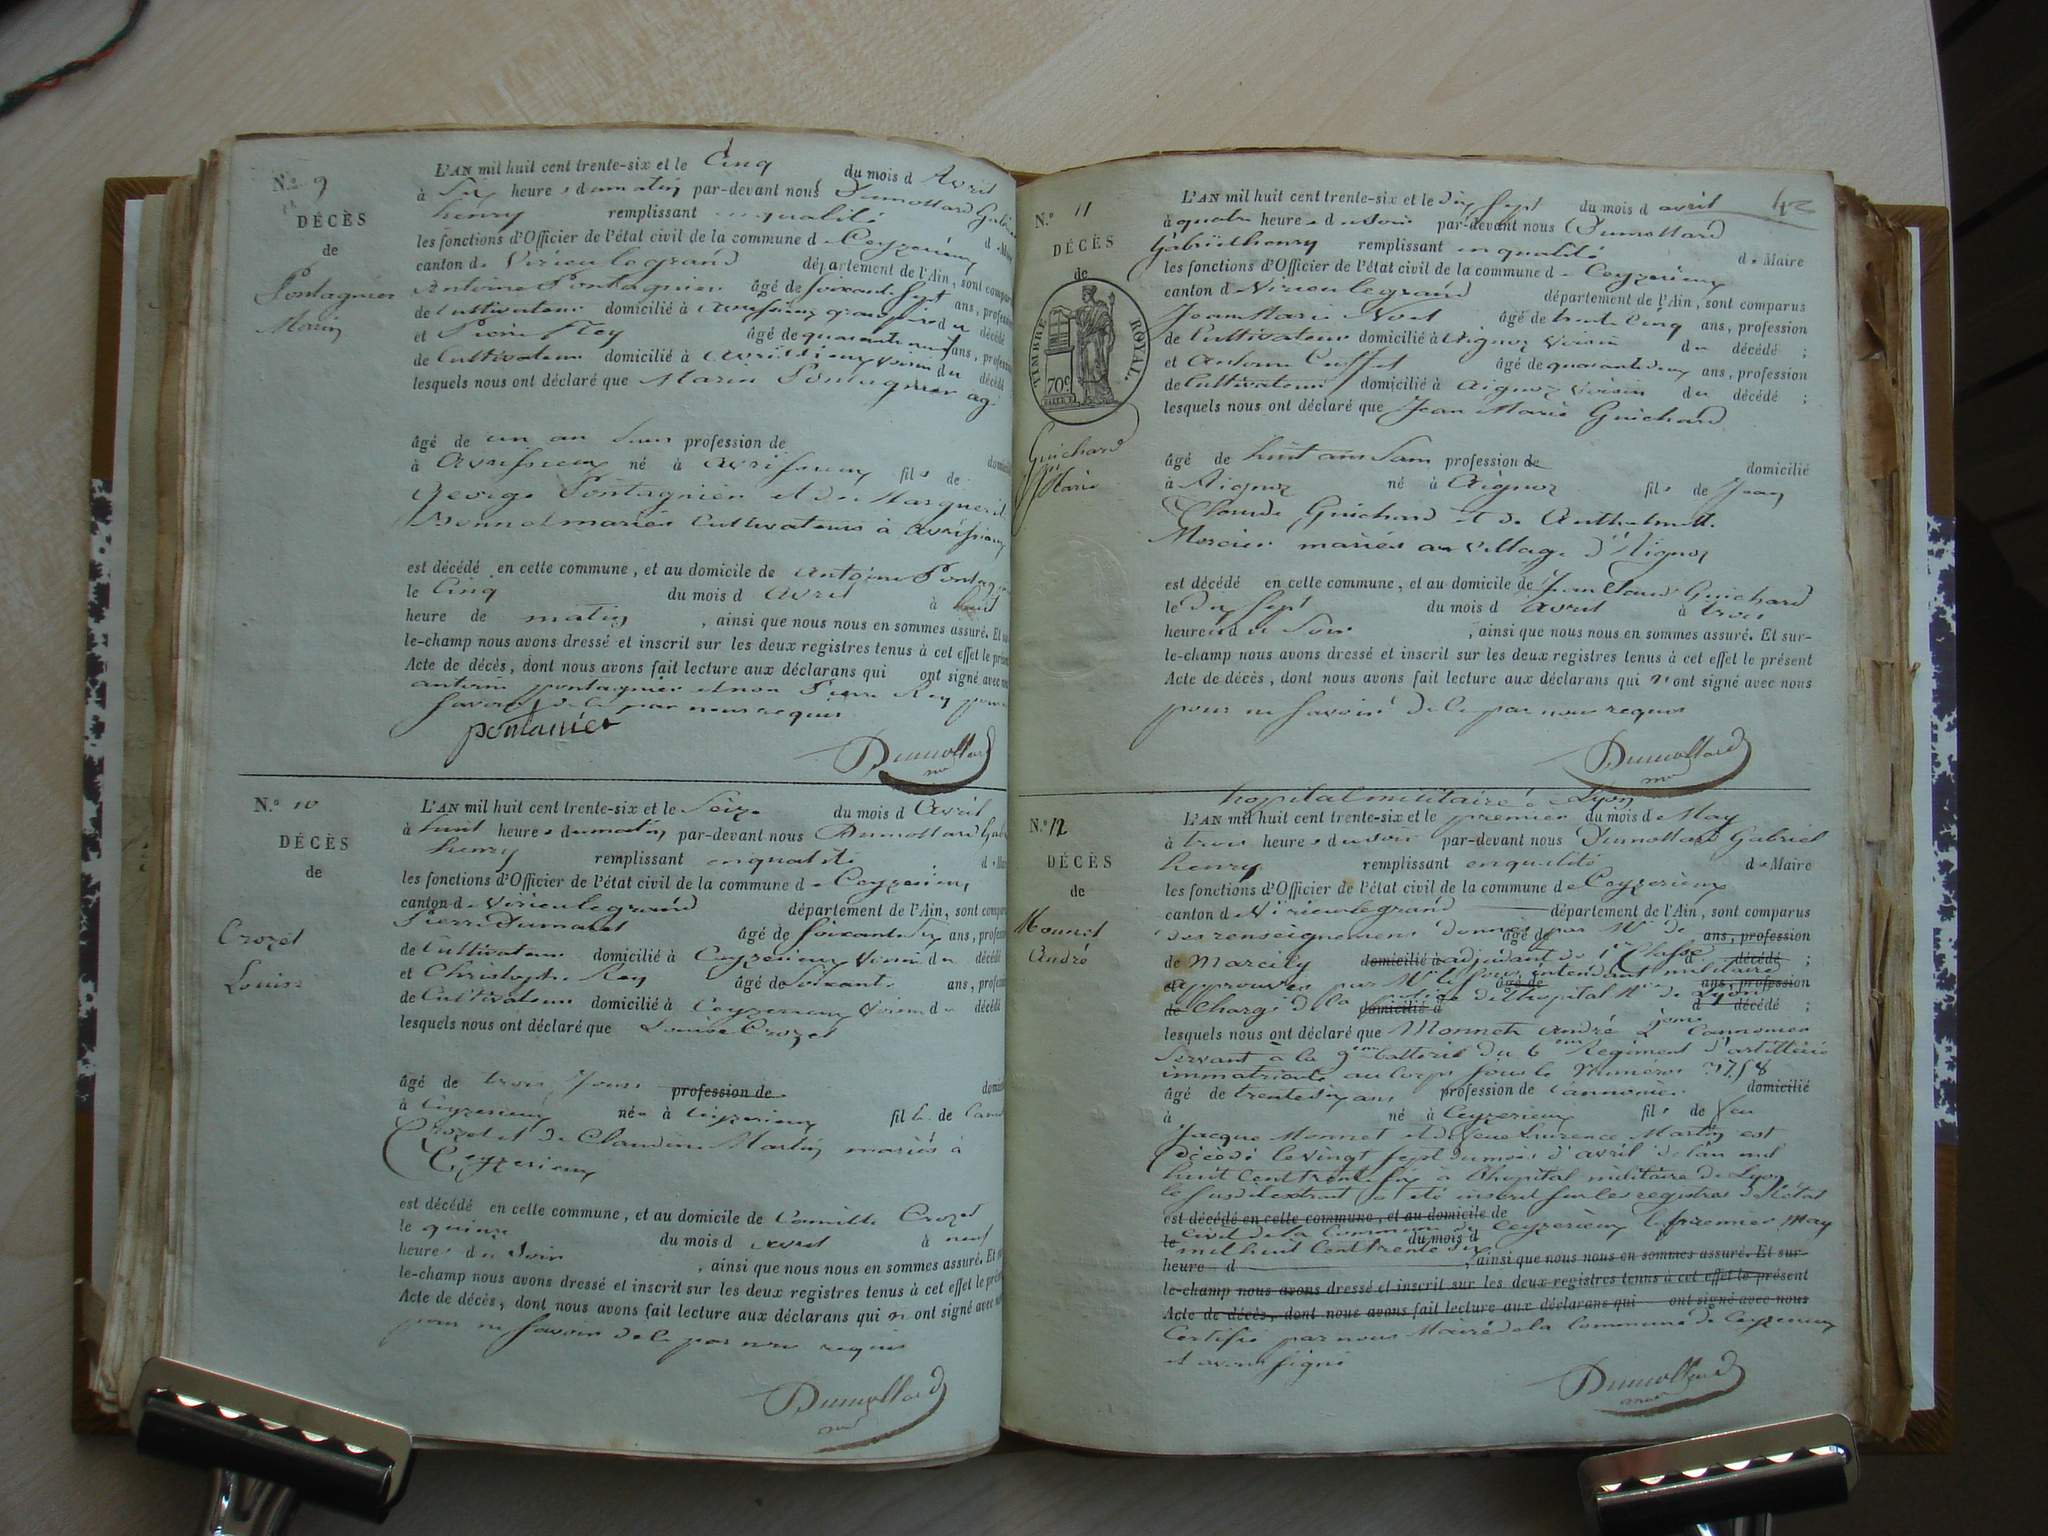 N.º 9
DÉCÈS
de
Pontagnier
Marin
L'AN mil huit cent trente-six et le Cinq du mois d Avril
à Six heures du matin par-devant nous Dumollard Gabriel
henry remplissant en qualité d. Maire
les fonctions d'Officier de l'état civil de la commune de Ceyzerieux
canton de Virieu le grand département de l'Ain, sont comparus
Antoine Pontagnier âgé de soixante sept ans, profession
de Cultivateur domicilié à avrissieux grand père du décédé
et Pierre Rey âgé de quarante neuf ans, profession
de Cultivateur domicilié à avrissieux voisin du décédé
lesquels nous ont déclaré que Marin Pontagnier agé
âgé de un an sans profession de domicilié
à avrissieux né à avrissieux fils de
George Pontagnier et de Marguerite
Monnet mariés Cultivateurs à avrissieux
est décédé en cette commune, et au domicile de antoine Pontagnier
le Cinq du mois d avril à
heure de matin, ainsi que nous nous en sommes assuré. Et sur-
le-champ nous avons dressé et inscrit sur les deux registres tenus à cet effet le présent
Acte de décès, dont nous avons fait lecture aux déclarans qui ont signé avec nous
antoine pontagnier et non Pierre Rey pour ne
savoir de le par nous requis
pontanier
Dumollard
N.º 10
DÉCÈS
de
Crozet
Louise
L'AN mil huit cent trente-six et le Seize du mois d Avril
à huit heures du matin par-devant nous Dumollard Gabriel
henry remplissant en qualité d. Maire
les fonctions d'Officier de l'état civil de la commune de Ceyzerieux
canton de Virieu le grand département de l'Ain, sont comparus
Pierre Dumarest âgé de soixante ans, profession
de Cultivateur domicilié à Ceyzerieux voisin du décédé
et Christophe Rey âgé de soixante ans, profession
de Cultivateur domicilié à Ceyzerieux voisin du décédé
lesquels nous ont déclaré que Louise Crozet
âgé de trois jours profession de domicilié
à Ceyzerieux née à Ceyzerieux fille de
Crozet et de Claudine Martin mariés à
Ceyzerieux
est décédé en cette commune, et au domicile de Camille Crozet
le quinze du mois d avril à neuf
heures du Soir, ainsi que nous nous en sommes assuré. Et sur-
le-champ nous avons dressé et inscrit sur les deux registres tenus à cet effet le présent
Acte de décès, dont nous avons fait lecture aux déclarans qui n ont signé avec nous
pour ne savoir de le par nous requis
Dumollard
N.º 11
DÉCÈS
de
TIMBRE ROYAL.
70c.
Guichard
Marie
L'AN mil huit cent trente-six et le dix sept du mois d avril
à quatre heures du soir par-devant nous Dumollard
Gabriel henry remplissant en qualité d. Maire
les fonctions d'Officier de l'état civil de la commune de Ceyzerieux
canton d Virieu le grand département de l'Ain, sont comparus
Jean Marie Noel âgé de trente cinq ans, profession
de Cultivateur domicilié à Aignoz voisin du décédé ;
et âgé de quarante deux ans, profession
de Cultivateur domicilié à Aignoz voisin du décédé ;
lesquels nous ont déclaré que Jean Marie Guichard
âgé de huit ans Sans profession de domicilié
à Aignoz né à Aignoz fils de Jean
Claude Guichard et de Anthelmette
Mercier mariés au village d'Aignoz
est décédé en cette commune, et au domicile de Jean Claude Guichard
le dix sept du mois d avril à trois
heures du Soir, ainsi que nous nous en sommes assuré. Et sur-
le-champ nous avons dressé et inscrit sur les deux registres tenus à cet effet le présent
Acte de décès, dont nous avons fait lecture aux déclarans qui n'ont signé avec nous
pour ne savoir de le par nous requis
Dumollard
hopital militaire à Lyon
N.º 12
DÉCÈS
de
Monnet
André
L'AN mil huit cent trente-six et le premier du mois de May
à trois heures du soir par-devant nous Dumollard Gabriel
henry remplissant en qualité d. Maire
les fonctions d'Officier de l'état civil de la commune de Ceyzerieux
canton d Virieu le grand département de l'Ain, sont comparus
des renseignemens donnés âgé de par Mr de ans, profession
de Marcily domicilié à adjudant de 1re Classe décédé ;
approuvés par Mr le sous intendant militaire âgé de ans, profession
de Chargé de la police de l'hopital Mre de Lyon domicilié à d décédé ;
lesquels nous ont déclaré que Monnet André 2eme Cannonier
Servant à la 9eme batterie du 6eme Régiment d'artillerie
immatriculé au Corps sous le Numeros 3758
âgé de trente six ans profession de Cannonier domicilié
à né à Ceyzerieux fils de feu
Jacque Monnet et de feue Laurence Martin est
décédé le vingt sept du mois d'avril de l'an mil
huit Cent trente six à l'hopital militaire de Lyon
le susdit extrait a été inscrit sur les registres de l'état
est décédé en cette commune, et au domicile de
civil de la Commune de Ceyzerieux le premier May
le du mois d
mil huit Cent trente six
heure d , ainsi que nous nous en sommes assuré. Et sur-
le-champ nous avons dressé et inscrit sur les deux registres tenus à cet effet le présent
Acte de décès, dont nous avons fait lecture aux déclarans qui ont signé avec nous
Certifié par nous Maire de la Commune de Ceyzerieux
et avons signé
Dumollard